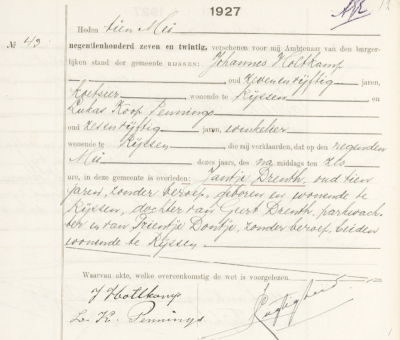 1927
Heden tien Mei
№ 43
negentienhonderd zeven en twintig, verschenen voor mij Ambtenaar van den burger-
lijken stand der gemeente RIJSSEN: Johannes Holtkamp
oud zevenenvijftig jaren,
Koetsier wonende te Rijssen en
Lukas Koop Pennings
oud zesenvijftig jaren, winkelier
wonende te Rijssen die mij verklaarden, dat op den negenden
Mei dezes jaars, des na middags ten zes
ure, in deze gemeente is overleden: Jantje Drenth, oud tien
jaren, zonder beroep, geboren en wonende te
Rijssen, dochter van Geert Drenth, parkwach-
ter en van Trientje Dontje, zonder beroep, beiden
wonende te Rijssen.
Waarvan akte, welke overeenkomstig de wet is voorgelezen.
J Holtkamp
L. K. Pennings